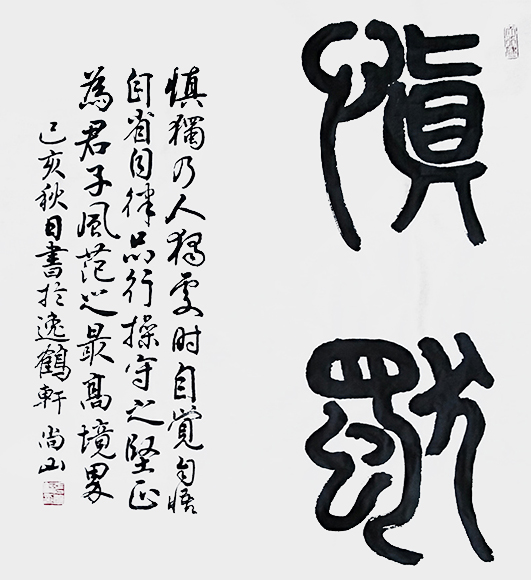 慎獨
慎獨乃人獨處时自覺自悟
自省自律品行操守之堅正
為君子風范之最高境界
己亥秋日書於逸鶴軒 尚山